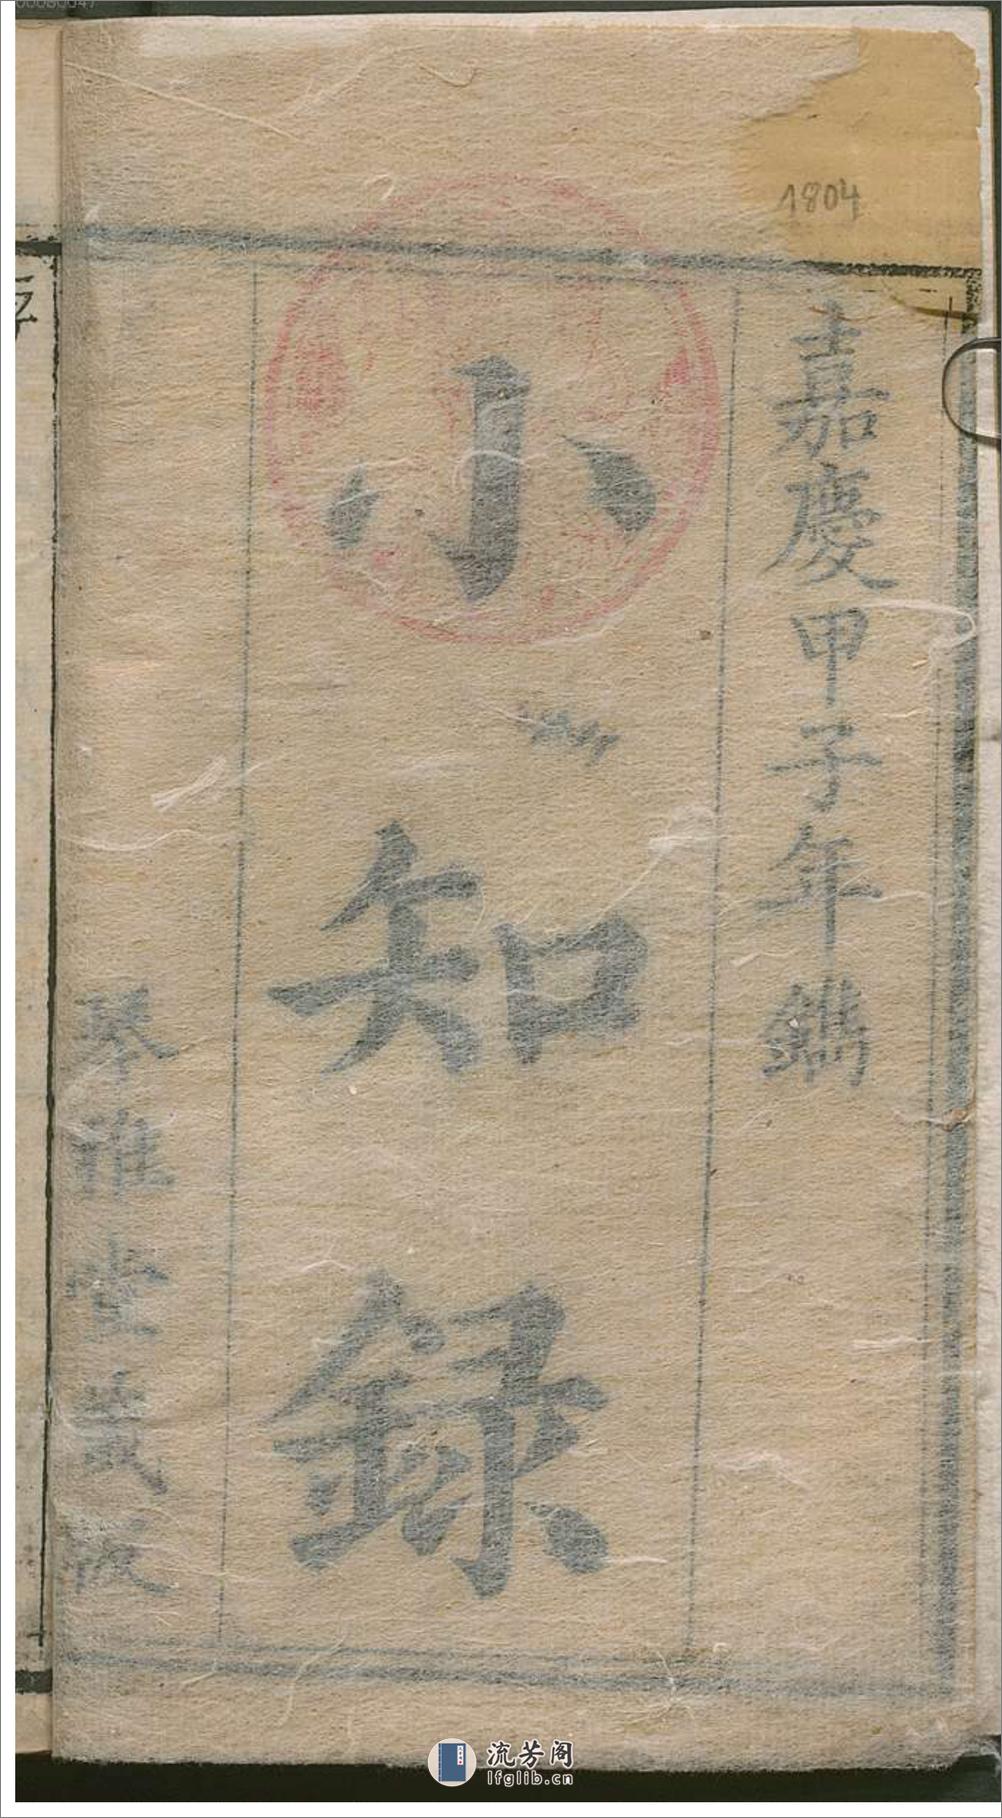 嘉慶甲子年鐫
小知録
琴雅堂藏板
1804
流芳阁
lfglib.cn